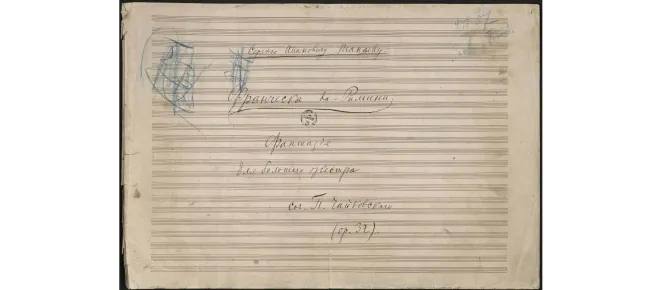 Сергею Ивановичу Танѣеву.
Франческа да-Римини,
Фантазія
для большаго оркестра
соч. П. Чайковскаго
(op. 32).